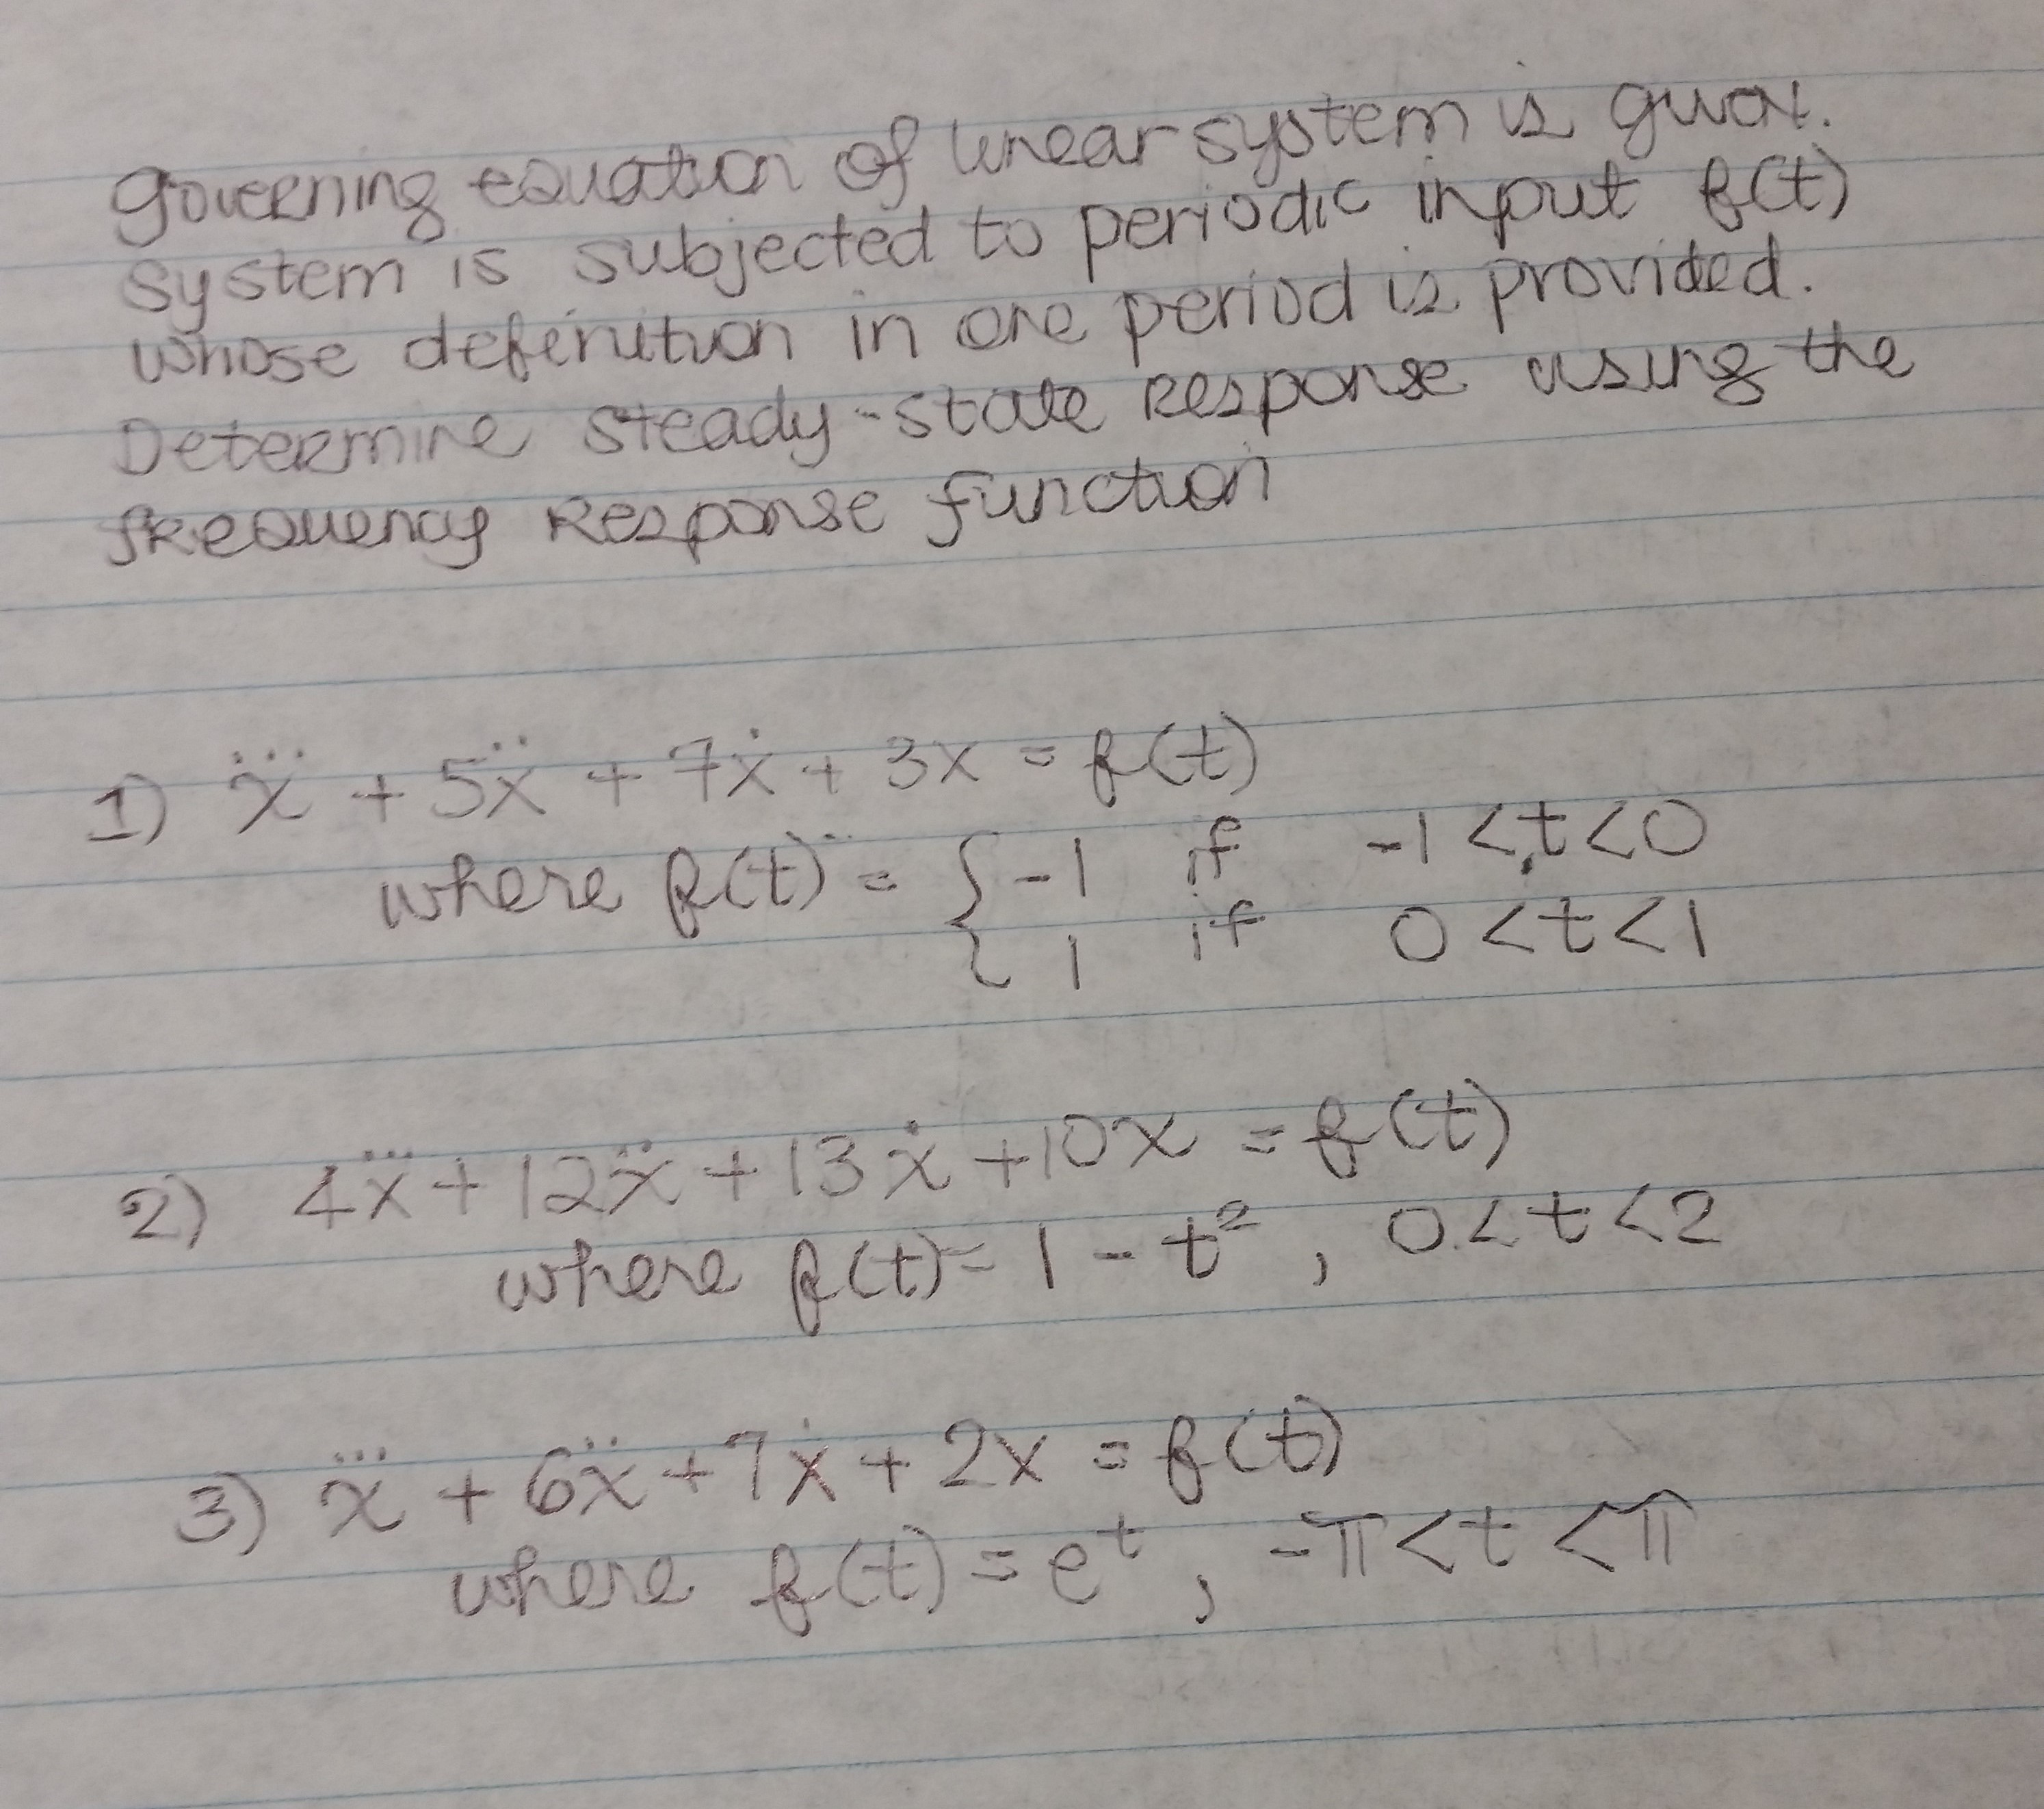 Governing equation of linear system is given.
System is subjected to periodic input f(t)
whose definition in one period is provided.
Determine steady-state response using the
frequency response function
1) x⃛ + 5ẍ + 7ẋ + 3x = f(t)
where f(t) = { -1 if -1 < t < 0
1 if 0 < t < 1
2) 4x⃛ + 12ẍ + 13ẋ + 10x = f(t)
where f(t) = 1 - t², 0 < t < 2
3) x⃛ + 6ẍ + 7ẋ + 2x = f(t)
where f(t) = eᵗ, -π < t < π